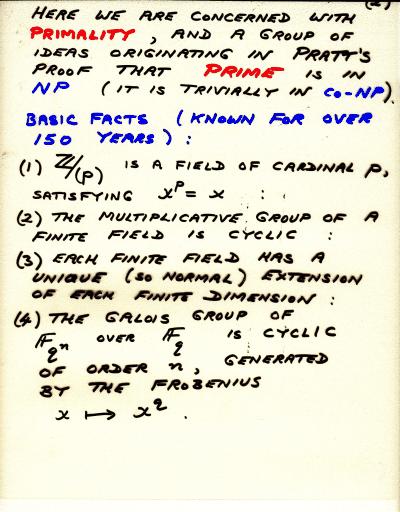 (2)
HERE WE ARE CONCERNED WITH
PRIMALITY, AND A GROUP OF
IDEAS ORIGINATING IN PRATT'S
PROOF THAT PRIME IS IN
NP (IT IS TRIVIALLY IN CO-NP).
BASIC FACTS (KNOWN FOR OVER
150 YEARS):
(1) ℤ/(p) IS A FIELD OF CARDINAL p,
SATISFYING xᵖ = x :
(2) THE MULTIPLICATIVE GROUP OF A
FINITE FIELD IS CYCLIC :
(3) EACH FINITE FIELD HAS A
UNIQUE (SO NORMAL) EXTENSION
OF EACH FINITE DIMENSION :
(4) THE GALOIS GROUP OF
𝔽_{qⁿ} OVER 𝔽_q IS CYCLIC
OF ORDER n, GENERATED
BY THE FROBENIUS
x ↦ x^q .